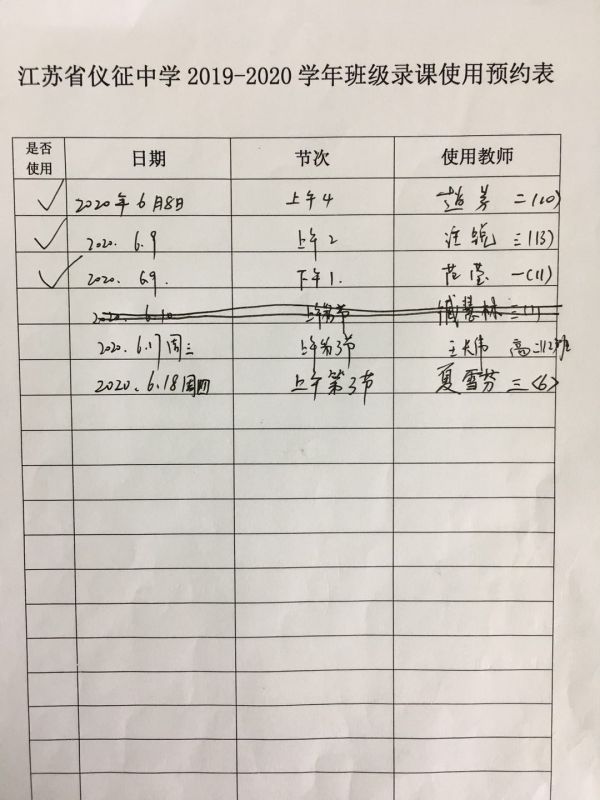 江苏省仪征中学2019-2020学年班级录课使用预约表
是否使用 日期 节次 使用教师
✓ 2020年6月8日 上午4 赵芳 二(10)
✓ 2020. 6.9 上午2 汪锐 三(13)
✓ 2020. 6.9. 下午1. 范莹 一(11)
2020. 6.10 上午 节 臧慧林 三(1)
2020.6.17周三 上午第3节 王大伟 高二112班
2020.6.18周四 上午第3节 夏雪芬 三<6>